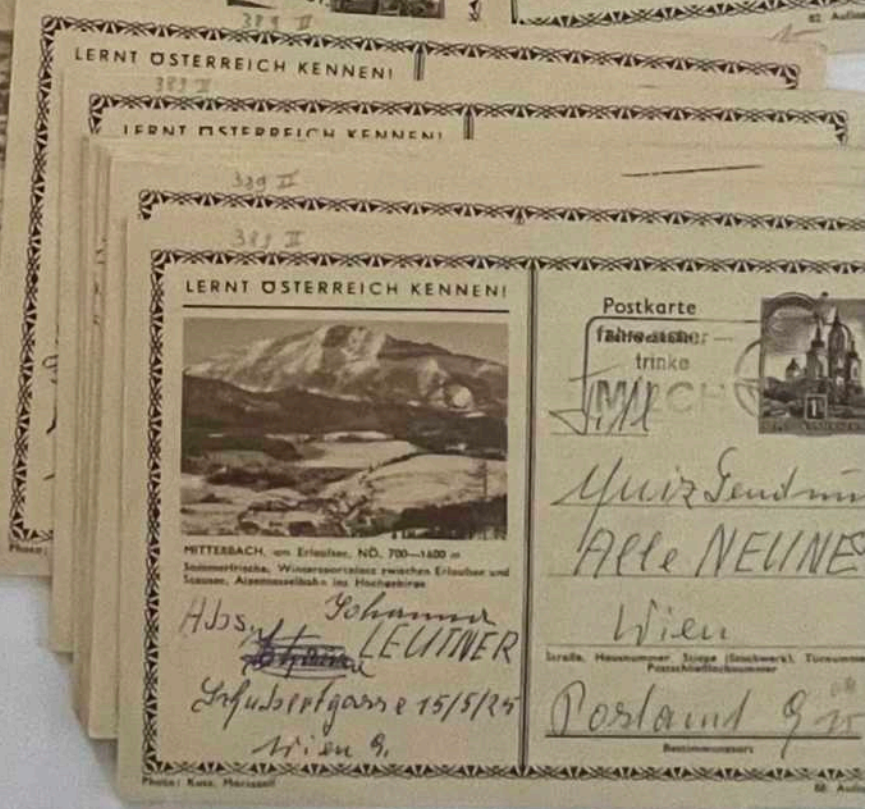 389 II
LERNT ÖSTERREICH KENNEN!
82. Aufl
389 II
LERNT ÖSTERREICH KENNEN!
389 II
389 II
LERNT ÖSTERREICH KENNEN!
MITTERBACH, am Erlaufsee, NÖ, 700—1600 m
Sommerfrische, Wintersportplatz zwischen Erlaufsee und
Stausee, Alpensesselbahn ins Hochgebirge
Abs. Johanna
LEUTNER
Schubertgasse 15/5/25
Wien 9.
Photo: Kuss, Mariazell
Photo:
Postkarte
trinke
MILCH
1
Quiz Sendun
Alle NEUNE
Wien
Straße, Hausnummer, Stiege (Stockwerk), Türnumme
Postschließfachnummer
Postamt 9
Bestimmungsort
88. Aufl